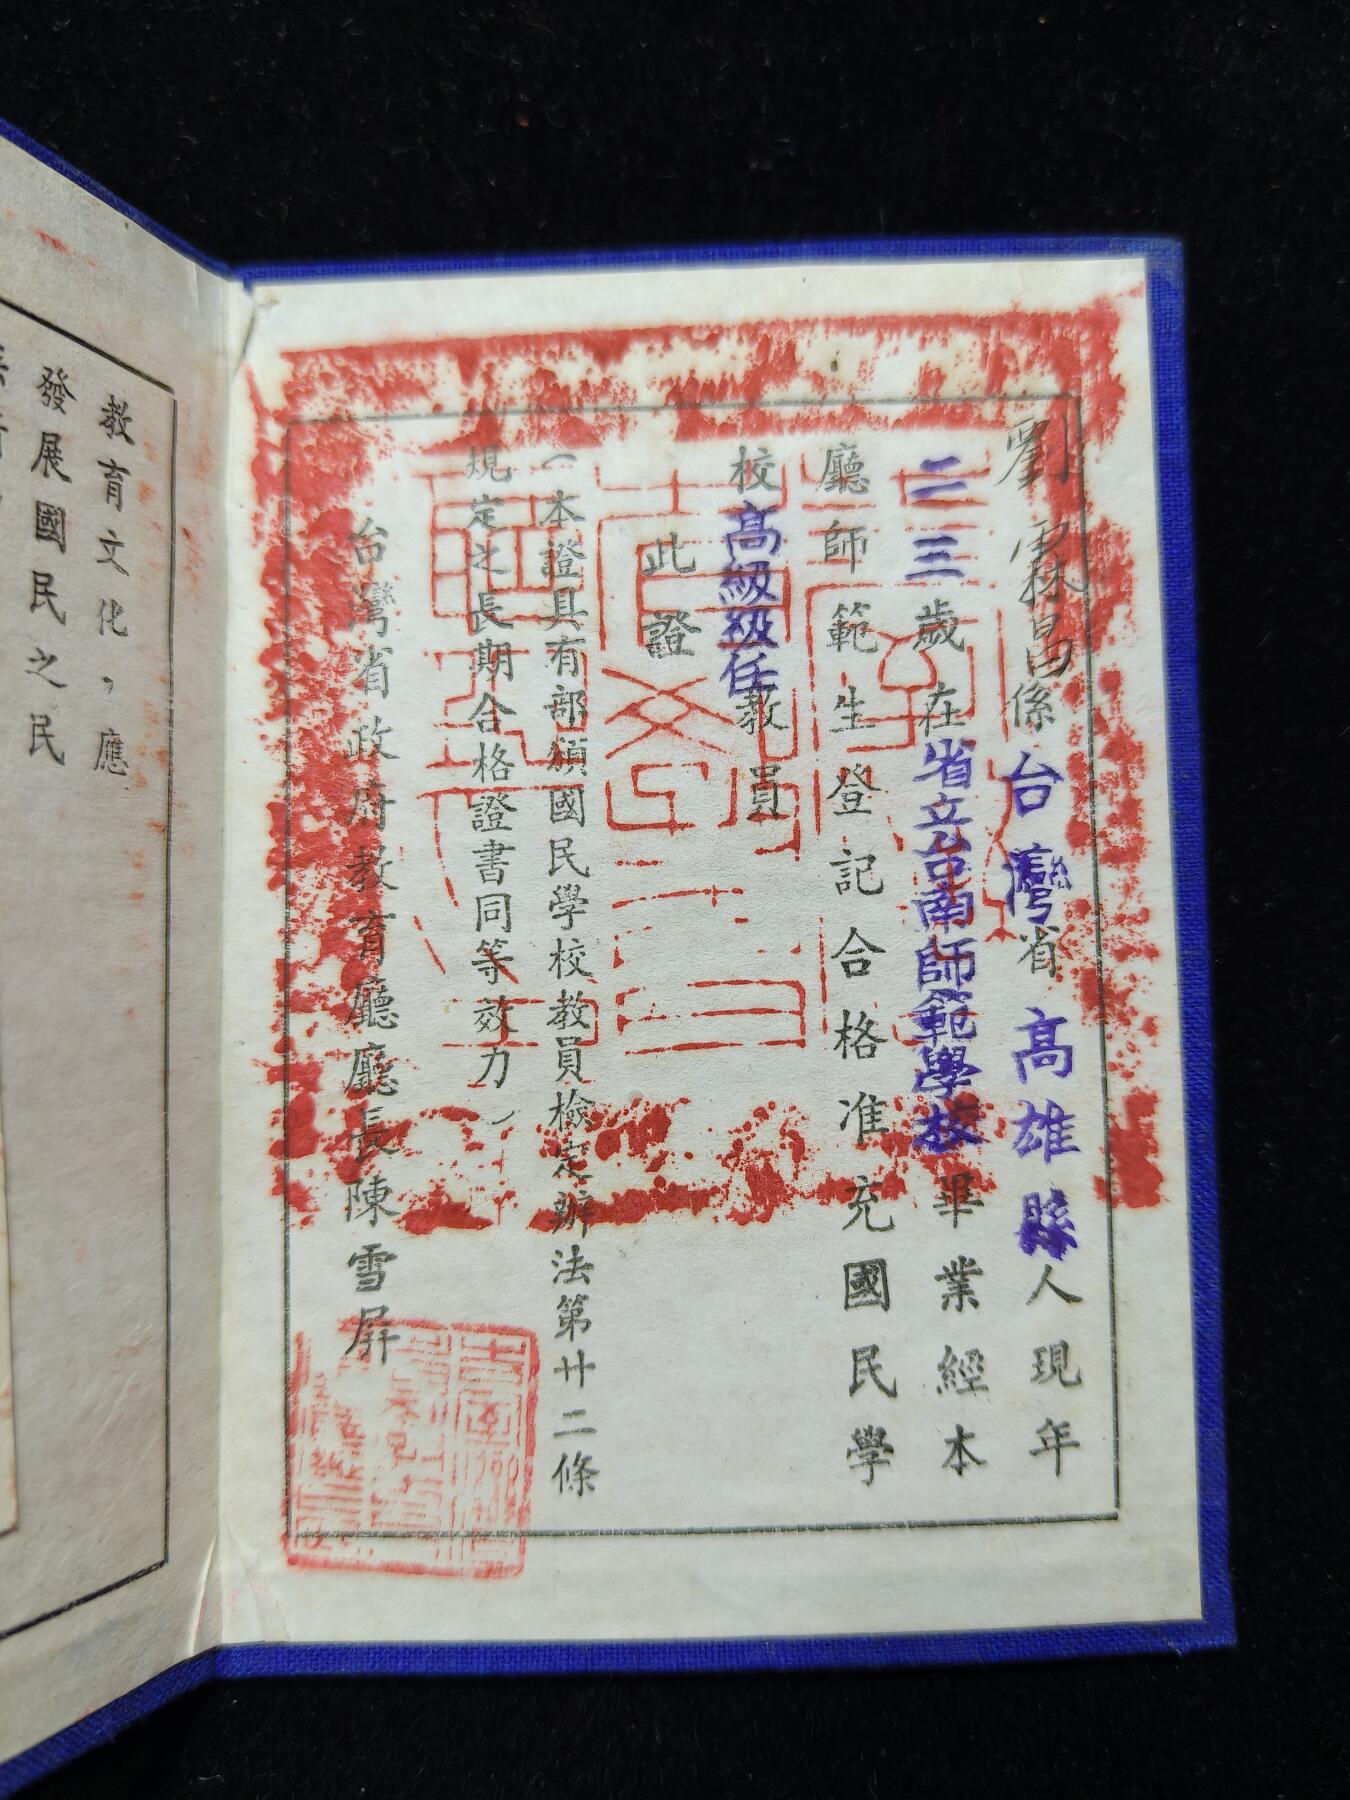 劉霖昌係台灣省高雄縣人現年
二三歲在省立台南師範學校畢業經本
廳師範生登記合格准充國民學
校高級級任教員
此證
(本證具有部頒國民學校教員檢定辦法第廿二條
規定之長期合格證書同等效力)
台灣省政府教育廳廳長陳雪屏
教育文化，應
發展國民之民